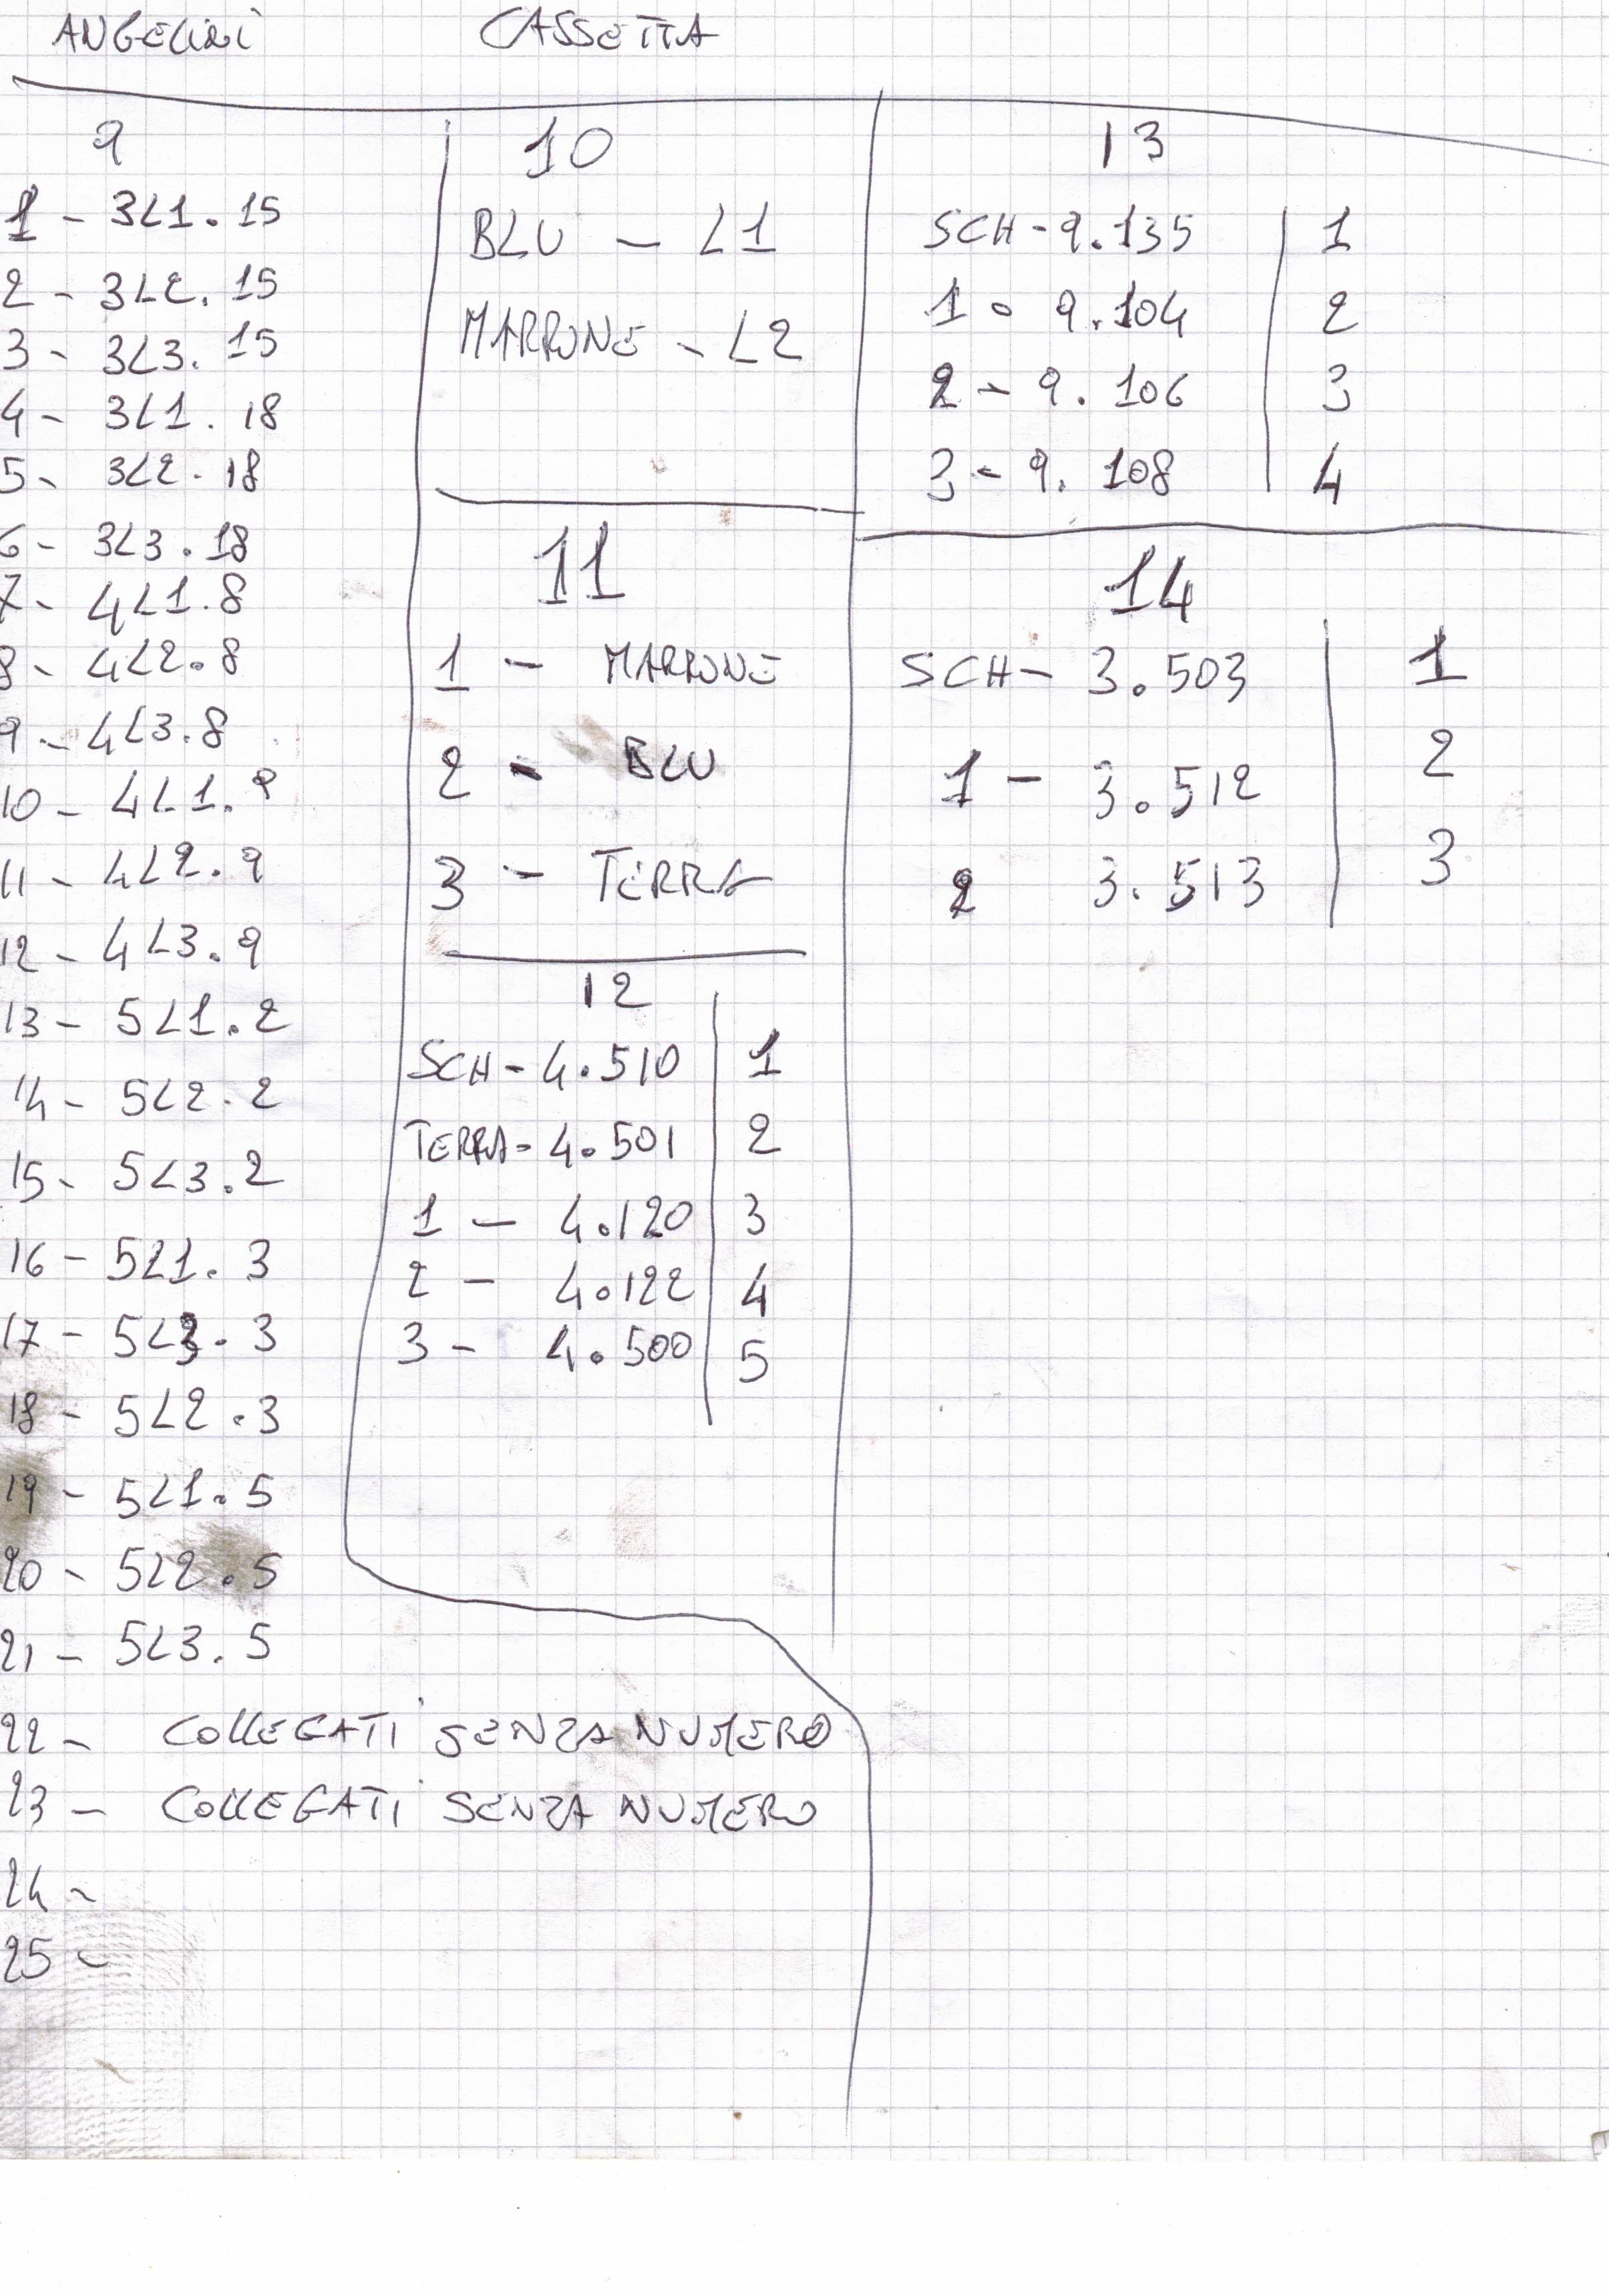 ANGELINI CASSETTA
9
1 - 3L1.15
2 - 3L2.15
3 - 3L3.15
4 - 3L1.18
5 - 3L2.18
6 - 3L3.18
7 - 4L1.8
8 - 4L2.8
9 - 4L3.8
10 - 4L1.9
11 - 4L2.9
12 - 4L3.9
13 - 5L1.2
14 - 5L2.2
15 - 5L3.2
16 - 5L1.3
17 - 5L3.3
18 - 5L2.3
19 - 5L1.5
20 - 5L2.5
21 - 5L3.5
22 - COLLEGATI SENZA NUMERO
23 - COLLEGATI SENZA NUMERO
24 -
25 -
10
BLU - L1
MARRONE - L2
11
1 - MARRONE
2 - BLU
3 - TERRA
12
SCH - 4.510 1
TERRA - 4.501 2
1 - 4.120 3
2 - 4.122 4
3 - 4.500 5
13
SCH - 9.135 1
1 - 9.104 2
2 - 9.106 3
3 - 9.108 4
14
SCH - 3.503 1
1 - 3.512 2
2 3.513 3